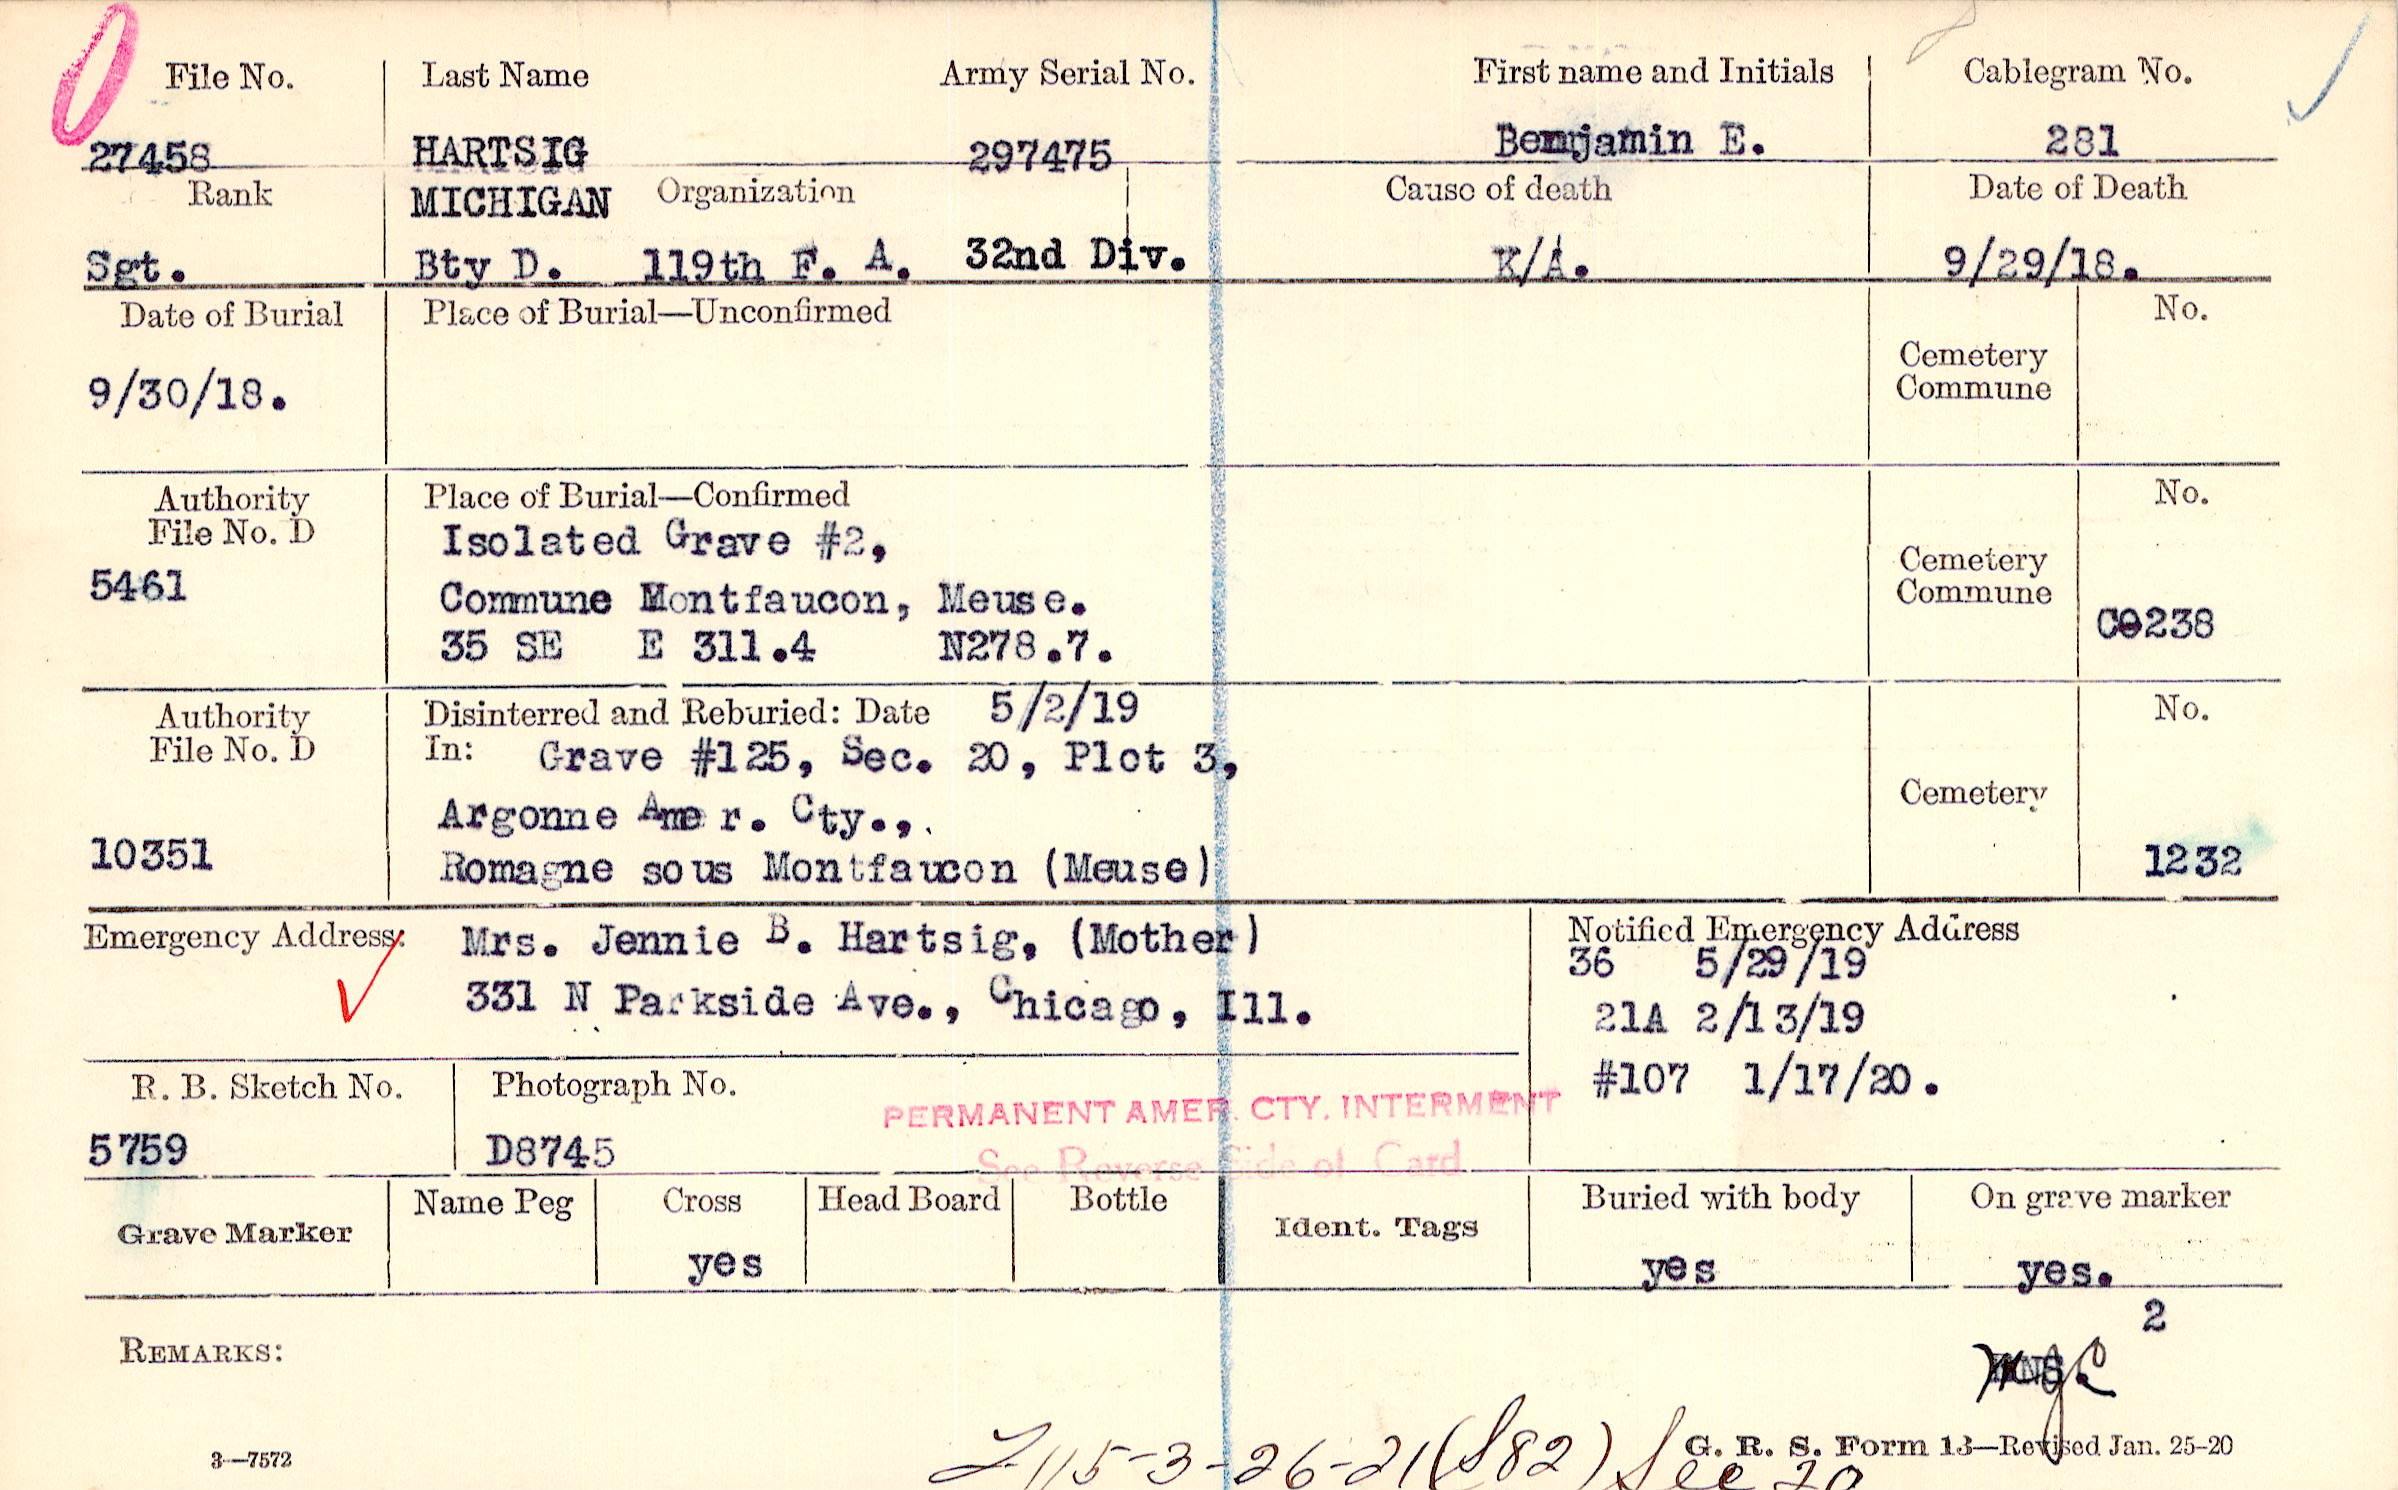 File No. Last Name Army Serial No. First name and Initials Cablegram No.
27458 HARTSIG 297475 Benjamin E. 281
Rank MICHIGAN Organization Cause of death Date of Death
Sgt. Bty D. 119th F. A. 32nd Div. K/A. 9/29/18.
Date of Burial Place of Burial—Unconfirmed No.
9/30/18. Cemetery
Commune
Authority Place of Burial—Confirmed No.
File No. D Isolated Grave #2,
5461 Commune Montfaucon, Meuse. Cemetery
Commune
35 SE E 311.4 N278.7. C0238
Authority Disinterred and Reburied: Date 5/2/19 No.
File No. D In: Grave #125, Sec. 20, Plot 3,
Argonne Amer. Cty., Cemetery
10351 Romagne sous Montfaucon (Meuse) 1232
Emergency Address: Mrs. Jennie B. Hartsig, (Mother) Notified Emergency Address
36 5/29/19
331 N Parkside Ave., Chicago, Ill. 21A 2/13/19
R. B. Sketch No. Photograph No. #107 1/17/20.
PERMANENT AMER. CTY. INTERMENT
5759 D8745 See Reverse Side of Card
Grave Marker Name Peg Cross Head Board Bottle Ident. Tags Buried with body On grave marker
yes yes yes.
2
REMARKS:
115-3-26-21 (S82) Sec 20
3—7572 G. R. S. Form 13—Revised Jan. 25-20